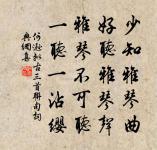 少知雅琴曲
好聽雅琴聲
雅琴不可聽
一聽一沾纓
何遜擬古三首聯句詞
典網集